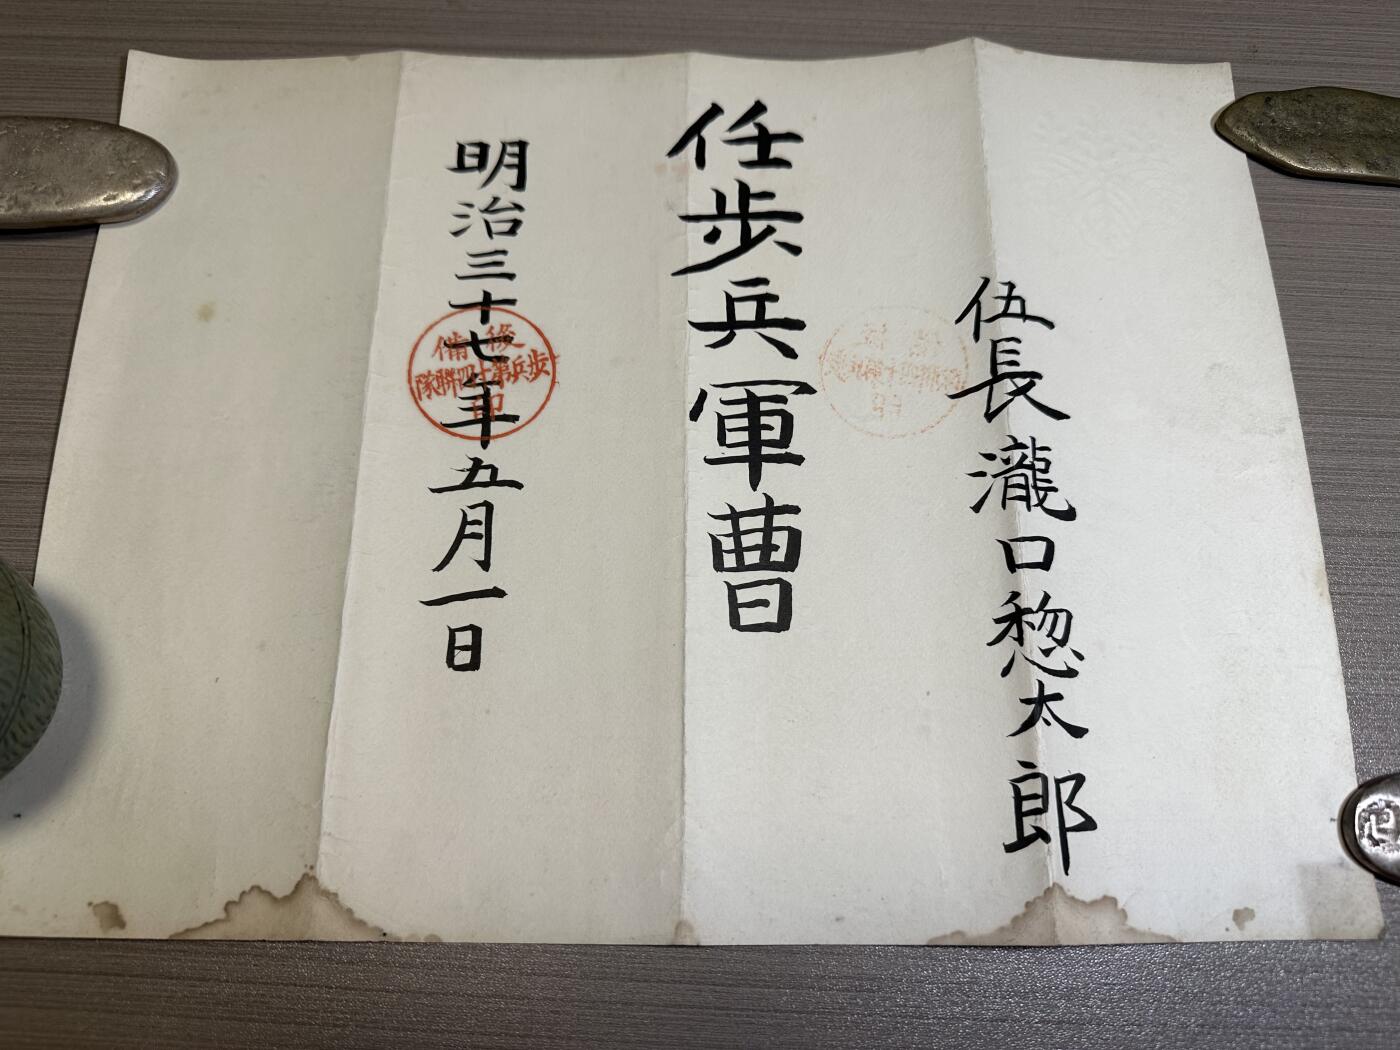 伍長瀧口惣太郎
任步兵軍曹
明治三十七年五月一日
後備
步兵第十四聯隊
印